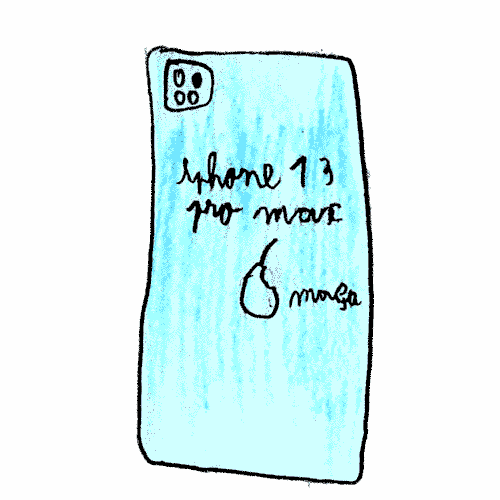 iphone 13
pro max
maça